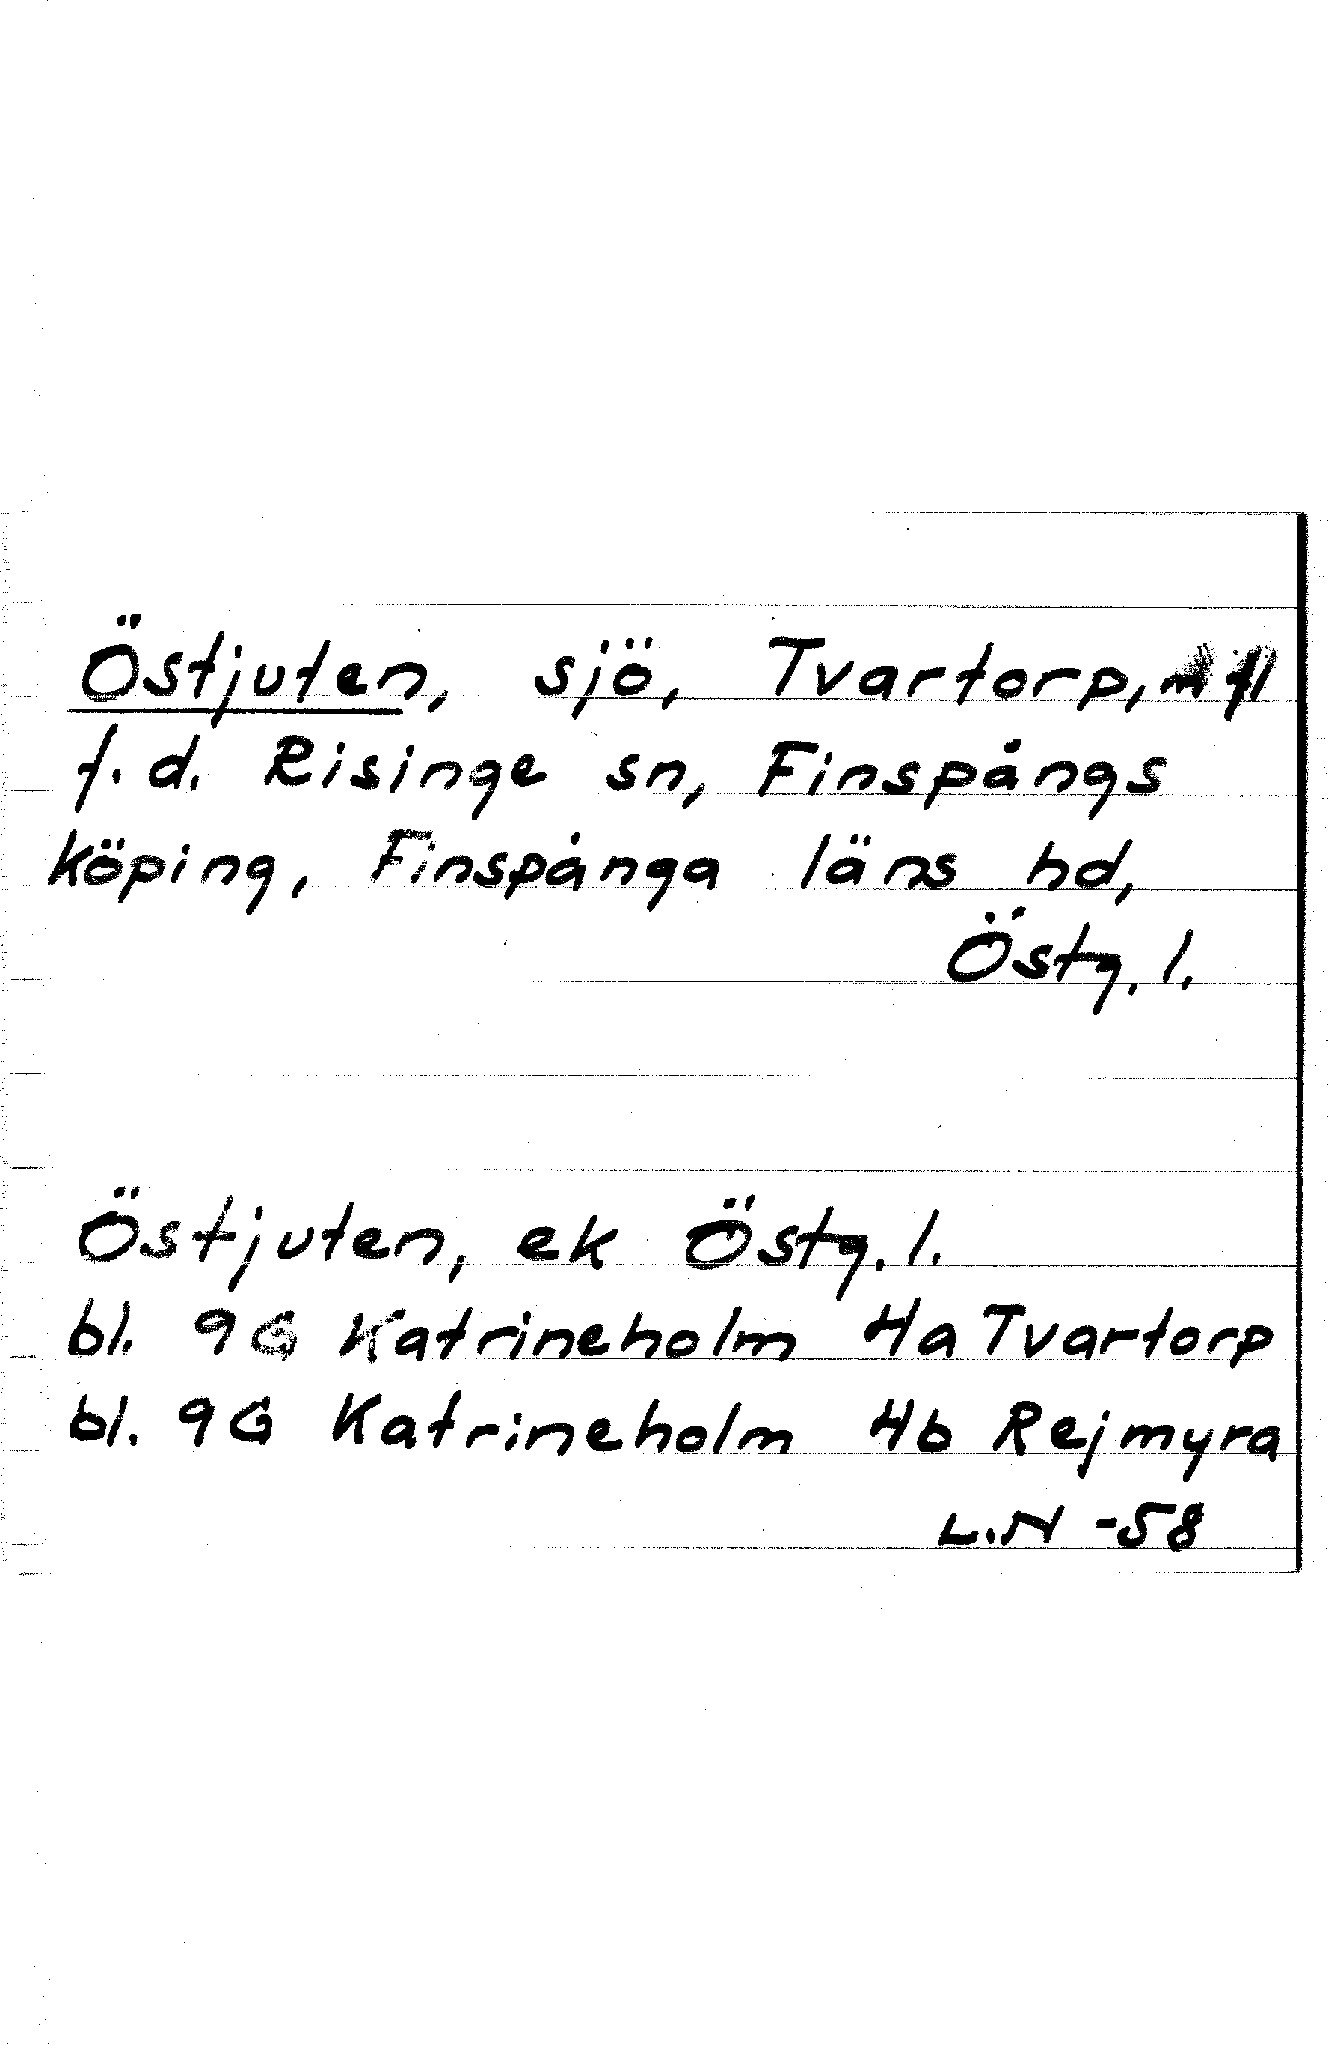 Östjuten, sjö, Tvartorp,
f.d. Risinge sn, Finspångs
köping, Finspånga läns hd,
Östg. l.
Östjuten, ek Östg. l.
bl. 9G Katrineholm 4a Tvartorp
bl. 9G Katrineholm 4b Rejmyra
L.N -58